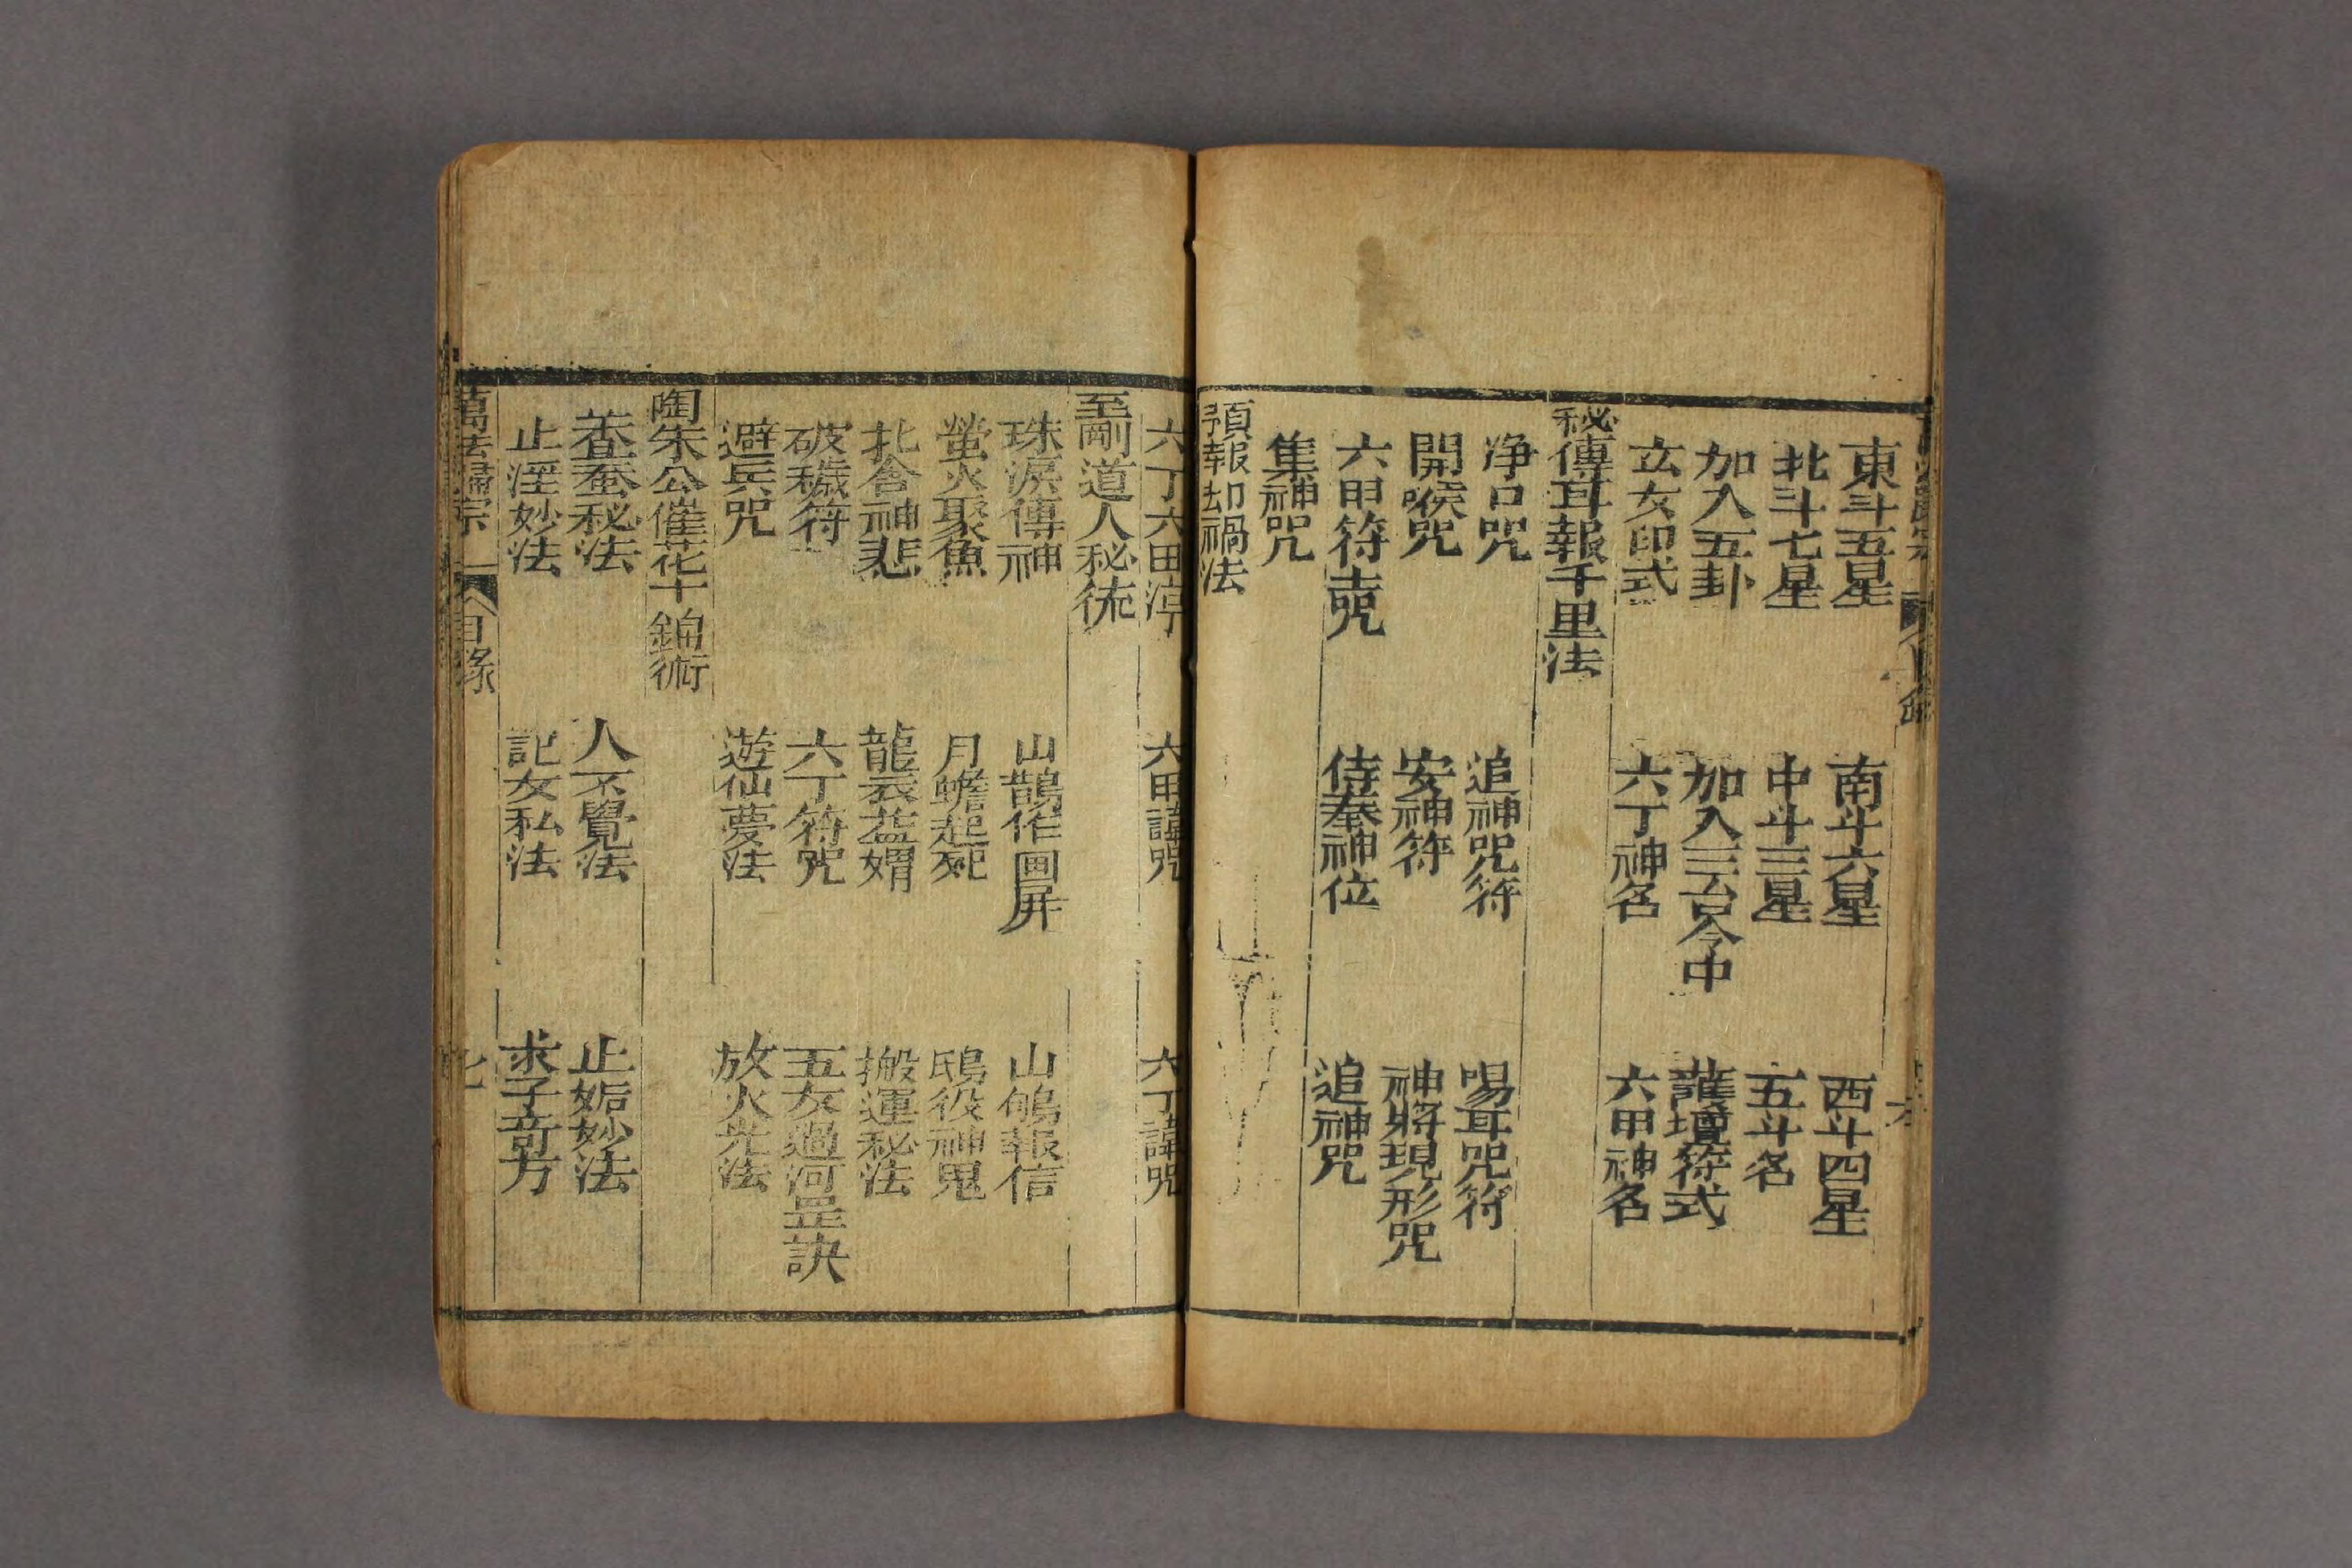 東斗五星 南斗六星 西斗四星
北斗七星 中斗三星 五斗名
加入五卦 加入三台令中 護壇符式
玄女印式 六丁神名 六甲神名
秘傳耳報千里法
净口咒 追神咒符 喝耳咒符
開喉咒 安神符 神將現形咒
六甲符咒 侍奉神位 追神咒
集神咒
預報却禍法
六丁六甲 六甲諱咒 六丁諱咒
至剛道人秘術
珠淚傳神 山鵲作画屏 山鳩報信
螢火聚魚 月蟾起死 鴟役神鬼
北含神悲 龍衣 搬運秘法
破穢符 六丁符咒 五女過河罡訣
避兵咒 遊仙夢法 放火光法
陶朱公催花十錦術
養蚕秘法 人不覺法 止妬妙法
止淫妙法 記女私法 求子奇方
萬法歸宗 目彔 七